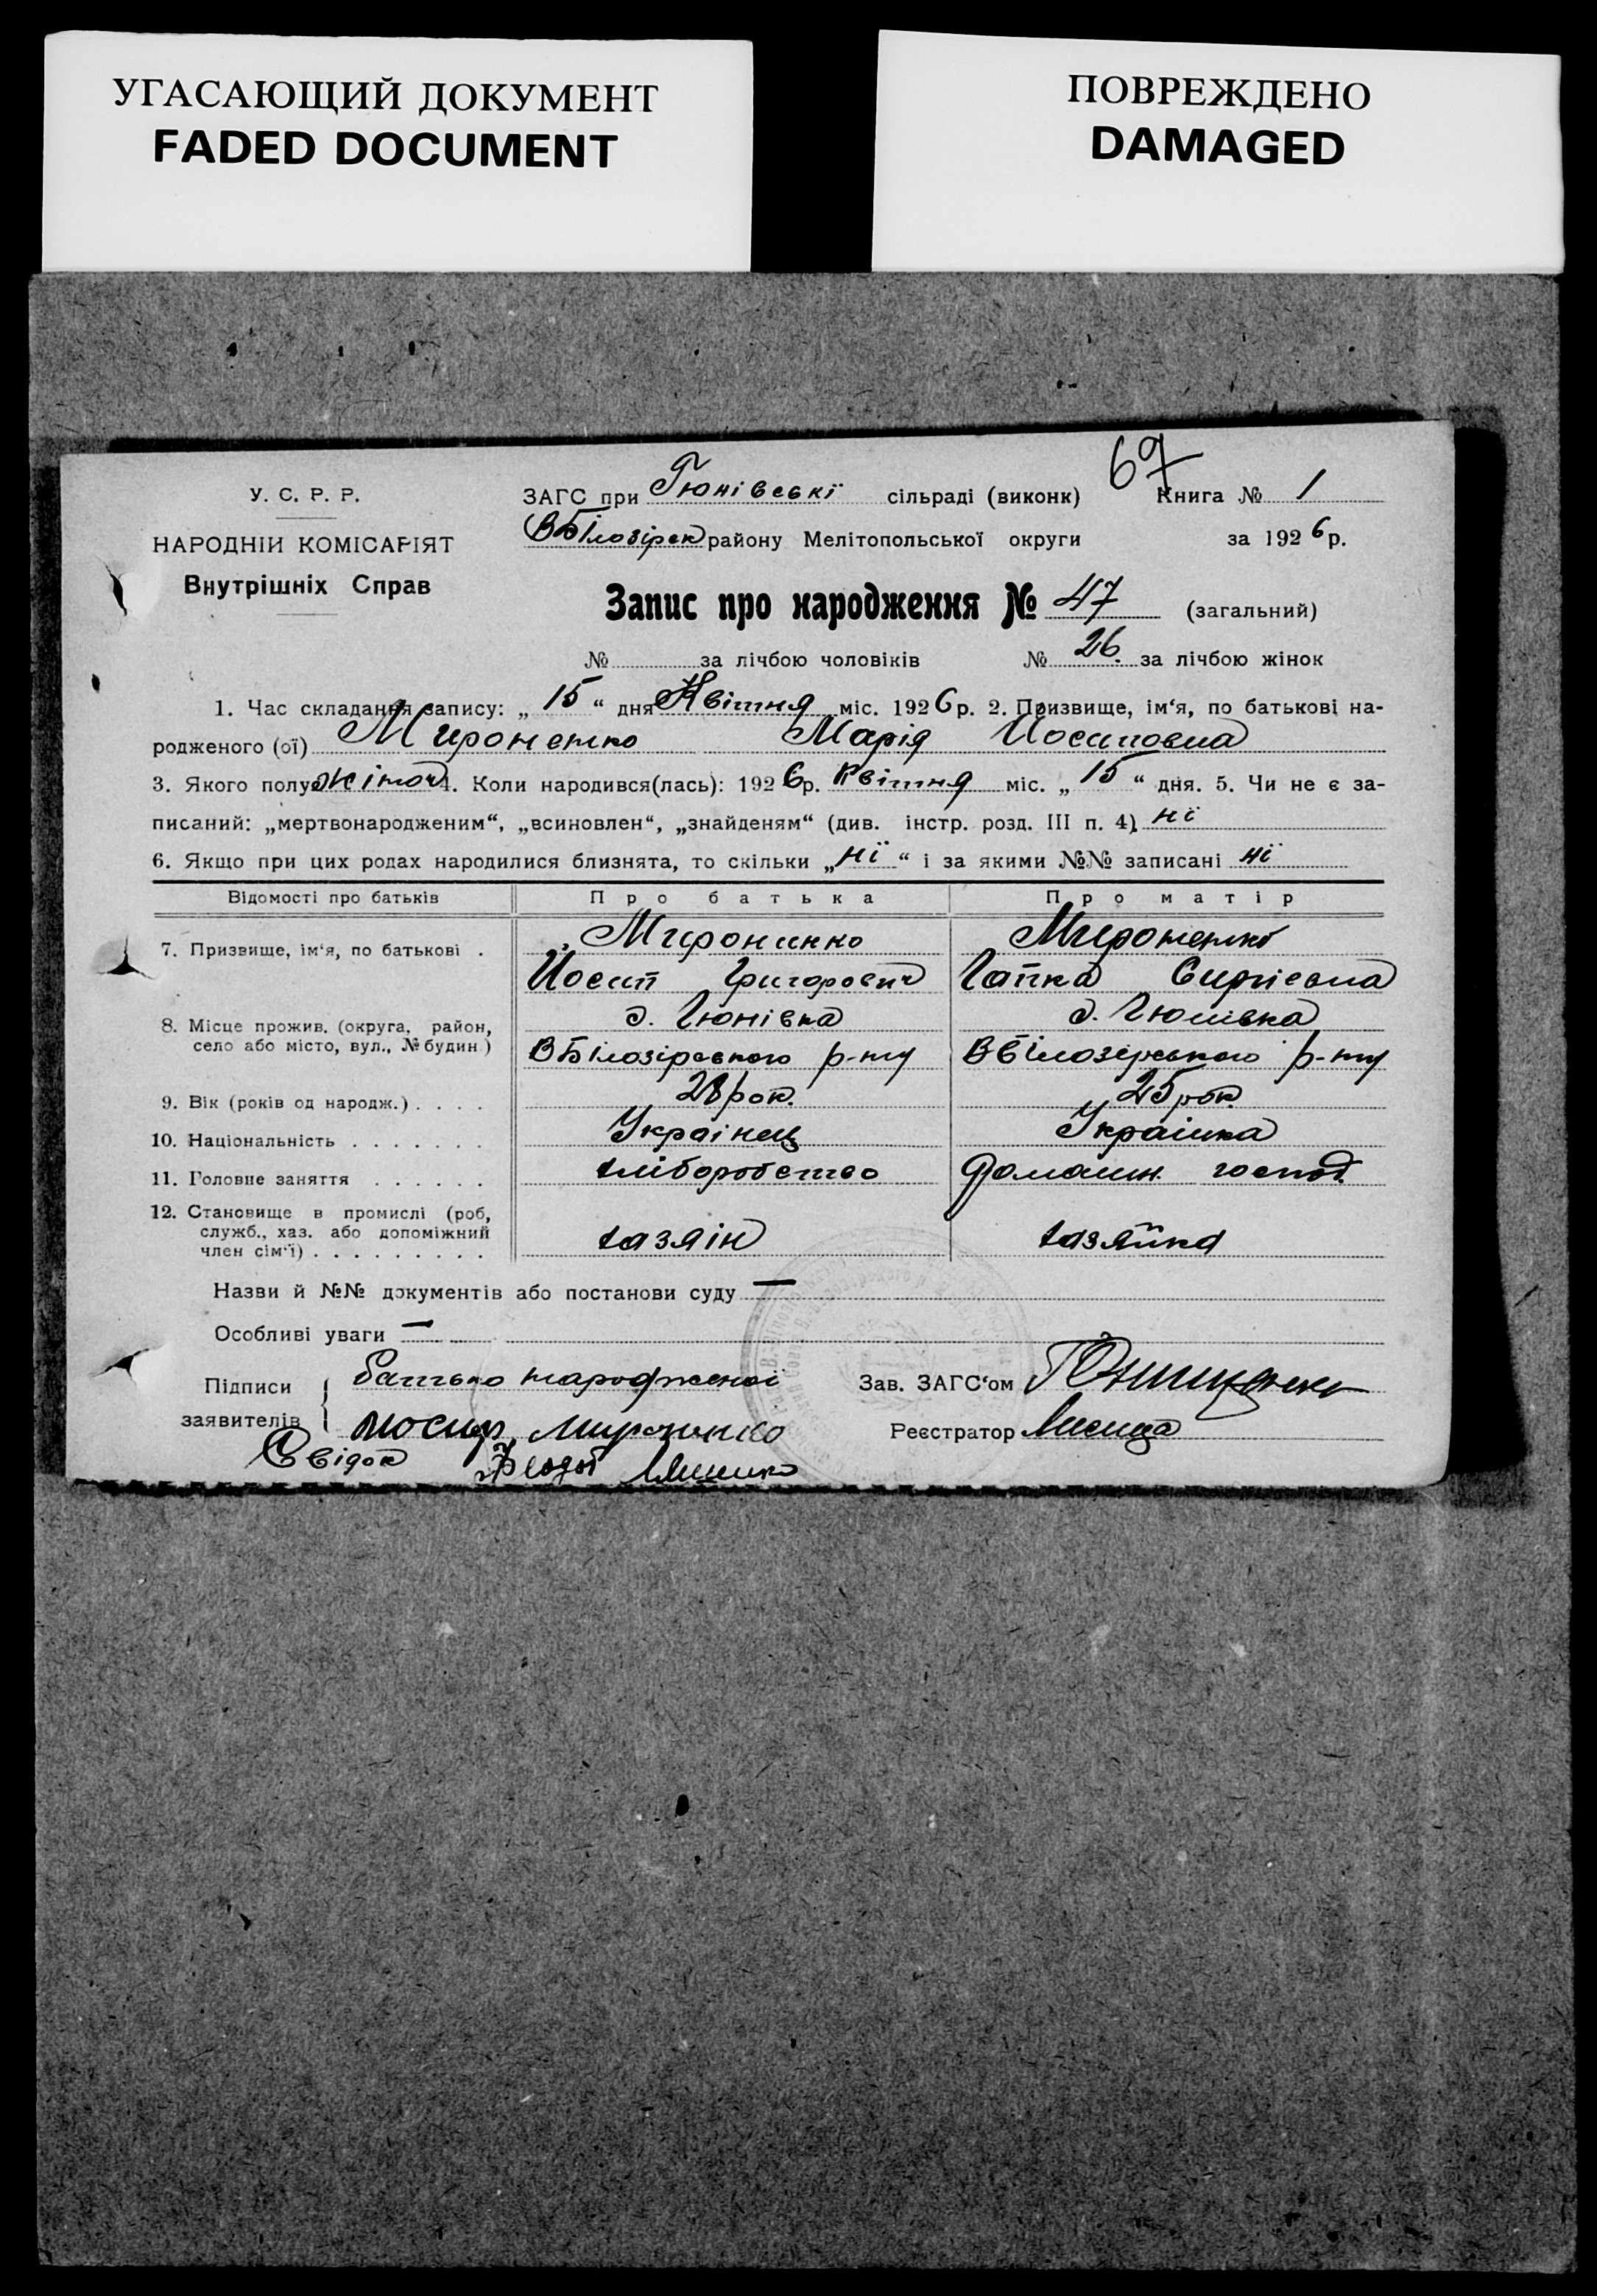 УГАСАЮЩИЙ ДОКУМЕНТ
FADED DOCUMENT
ПОВРЕЖДЕНО
DAMAGED
69
У. С. Р. Р.
НАРОДНІЙ КОМІСАРІЯТ
Внутрішніх Справ
ЗАГС при Гюнівські сільраді (виконк) Книга № 1
ВБілозірск району Мелітопольської округи за 1926р.
Запис про народження № 47 (загальний)
№ за лічбою чоловіків № 26. за лічбою жінок
1. Час складання запису: „ 15 “ дня Квітня міс. 1926р. 2. Призвище, ім‘я, по батькові на-
родженого (ої) Мироненко Марія Йосиповна
3. Якого полу жіноч 4. Коли народився(лась): 1926р. Квітня міс. „ 15 “ дня. 5. Чи не є за-
писаний: „мертвонародженим“, „всиновлен“, „знайденям“ (див. інстр. розд. III п. 4). ні
6. Якщо при цих родах народилися близнята, то скільки „ні“ і за якими №№ записані ні
Відомості про батьків Про батька Про матір
7. Призвище, ім‘я, по батькові . Миронинко Мироненко
Йосип Григорович Гапка Сиргіевна
8. Місце прожив. (округа, район, д. Гюнівка д. Гюнівка
село або місто, вул., № будин) ВБілозірського р-ну ВБілозерського р-ну
9. Вік (років од народж.) . . . . 28 рок. 25 рок.
10. Національність . . . . . . . Українец Українка
11. Головне заняття . . . . . . хліборобство Домашн. господ.
12. Становище в промислі (роб,
служб., хаз. або допоміжний хазяін хазяйка
член сім‘ї) . . . . . . . . .
Назви й №№ документів або постанови суду —
Особливі уваги —
Підписи заявителів батько народженої Зав. ЗАГС‘ом
Миронинко Реєстратор Лисица
Свідок Федот